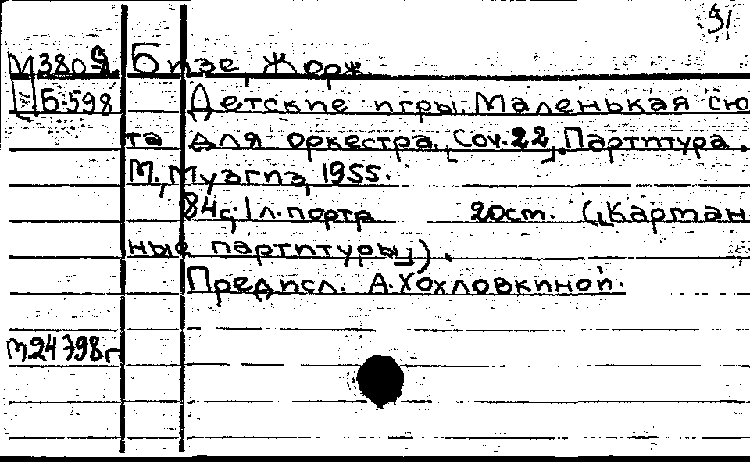 91
М3809 Бизе, Жорж.
Б-598 Детские игры. Маленькая сю
та для оркестра. [Соч. 22]. Партитура.
М., Музгиз, 1955.
84 с; 1 л. портр 20 см. ("Карман
ные партитуры").
Предисл. А. Хохловкиной.
М24798г